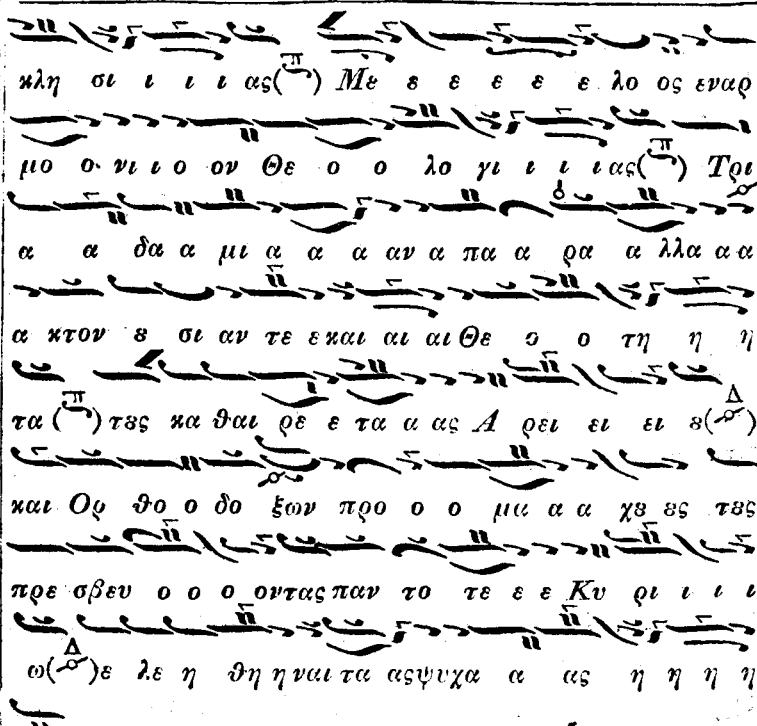 κλη σι ι ι ι ας(π) Μȣ ȣ ȣ ȣ ȣ ȣ λο ος εναρ
μο ο νι ι ο ον Θε ο ο λο γι ι ι ι ας(π) Τρι
α α δα α μι α α α αν α πα α ρα α λλα α α
α κτον ȣ σι αν τε ε και αι αι Θε ο ο τη η η
τα (π) τȣς κα θαι ρε ε τα α ας Α ρει ει ει ȣ(Δ)
και Ορ θο ο δο ξων προ ο ο μα α α χȣ ȣς τȣς
πρε σβευ ο ο ο οντας παν το τε ε ε Κυ ρι ι ι ι
ω(Δ)ε λε η θη η ναι τα ας ψυχα α ας η η η η